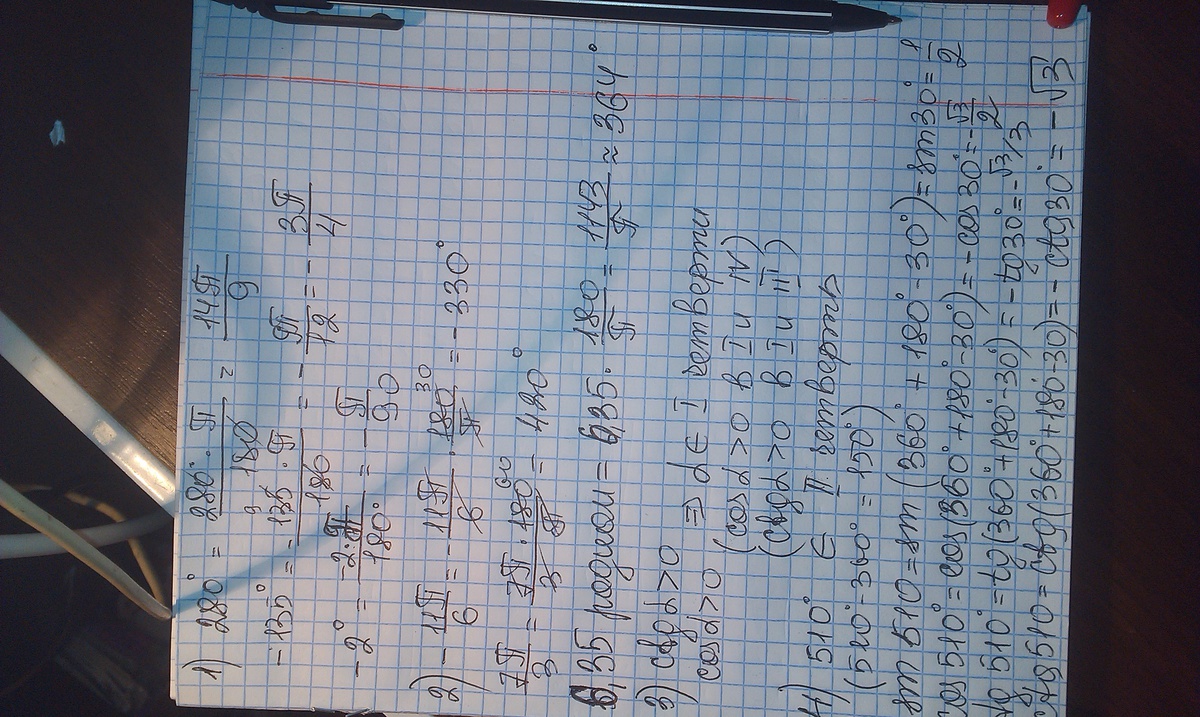 1) 280° = 280° · π / 180 = 14π / 9
-135° = -135 · π / 180 = - π / 12 = - 3π / 4
-2° = -2 · π / 180° = - π / 90
2) - 11π / 6 = - 11π / 6 · 180 30 / π = - 330°
7π / 3 = 7π · 180 60 / 3 · π = 420°
6,35 радиан = 6,35 · 180 / π = 1143 / π ≈ 364°
3) ctgα > 0
cosα > 0 ⇒ α ∈ I четверти
(cosα > 0 в I и IV)
(ctgα > 0 в I и III)
4) 510° ∈ II четверти
(510° - 360° = 150°)
sin 510 = sin (360° + 180° - 30°) = sin 30° = 1/2
cos 510° = cos (360° + 180° - 30°) = - cos 30° = - √3/2
tg 510° = tg (360° + 180° - 30°) = - tg 30° = - √3/3
ctg 510 = ctg (360° + 180 - 30) = - ctg 30° = - √3